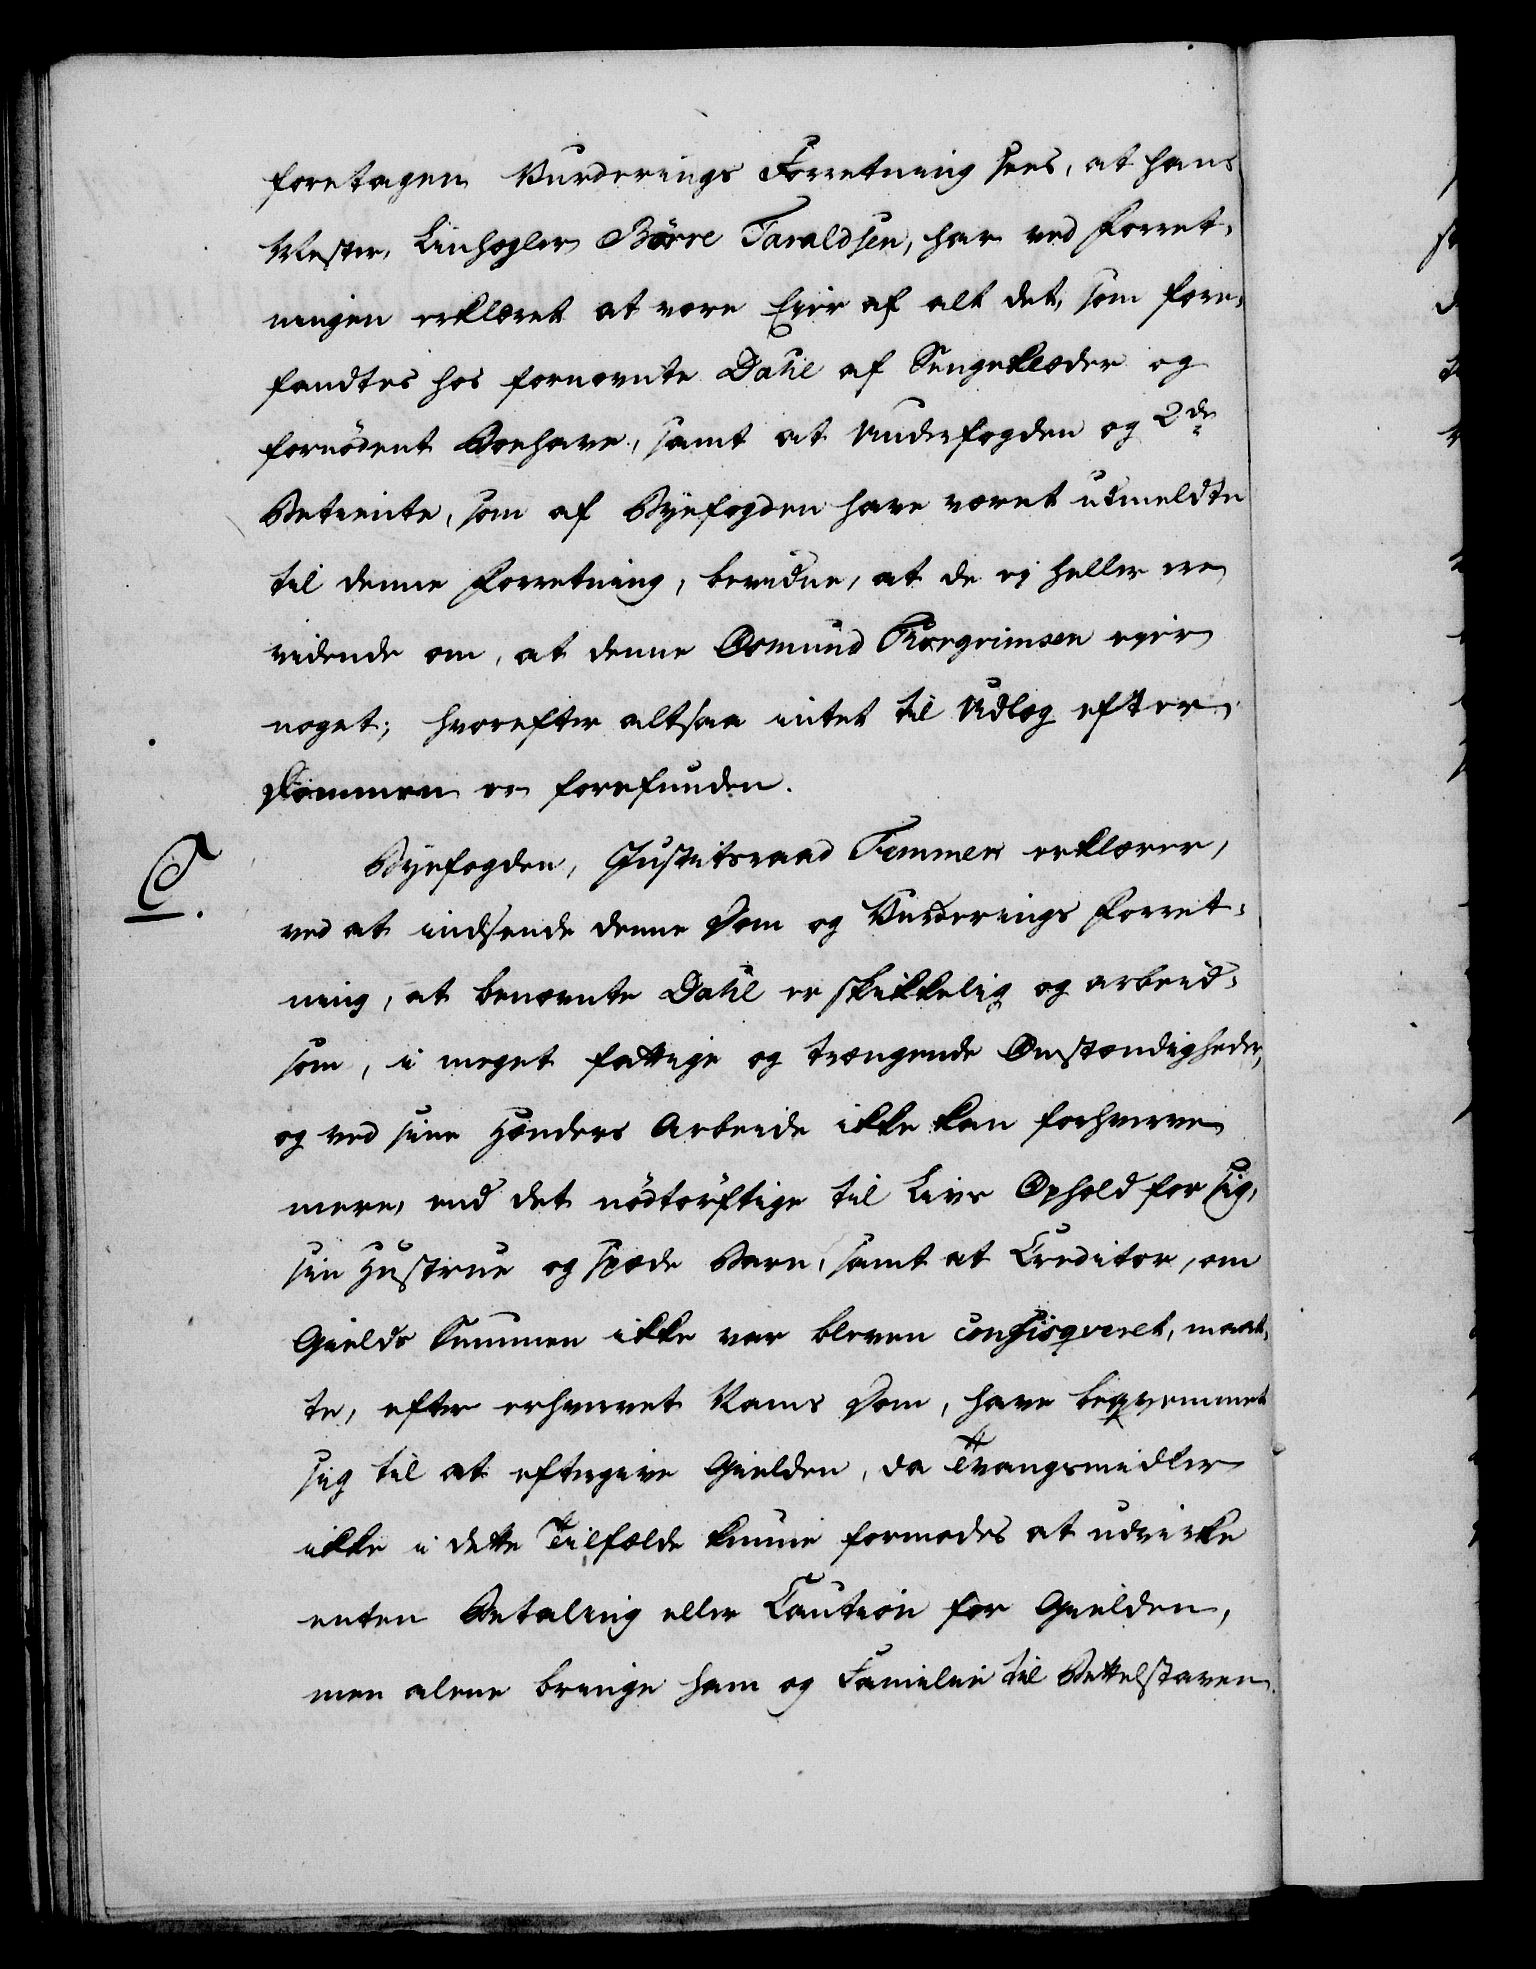 foretagen Vurderings Forretning sees, at hans
Mester, Linhegler Börre Taraldsen, har ved Forret-
ningen erklæret at være Eier af alt det, som fore-
fandtes hos fornevnte Dahl af Sengeklæder og
fornödent Boehave, samt at Underfogden og 2de
Betiente, som af Byefogden have været udmeldte
til denne Forretning, bevidne, at de ei heller ere
vidende om, at denne Osmund Thorgrimsen eier
noget; hvorefter altsaa intet til Udlæg efter
Dommen er forefunden.
C.
Byefogden, Justitsraad Femmer erklærer,
ved at indsende denne Dom og Vurderings Forret-
ning, at benævnte Dahl er skikkelig og arbeid-
som, i meget fattige og trængende Omstændigheder,
og ved sine Hænders Arbeide ikke kan forhverve
mere, end det nödtörftige til Livs Ophold for sig,
sin Hustrue og spæde Barn, samt at Creditor, om
Gields Summen ikke var bleven confisqveret, maat-
te, efter erhvervet Nams Dom, have beqvemmet
sig til at eftergive Gielden, da Tvangsmidler
ikke i dette Tilfælde kunne formodes at udvirke
enten Betaling eller Caution for Gielden,
men alene bringe ham og Familie til Bettelstaven.